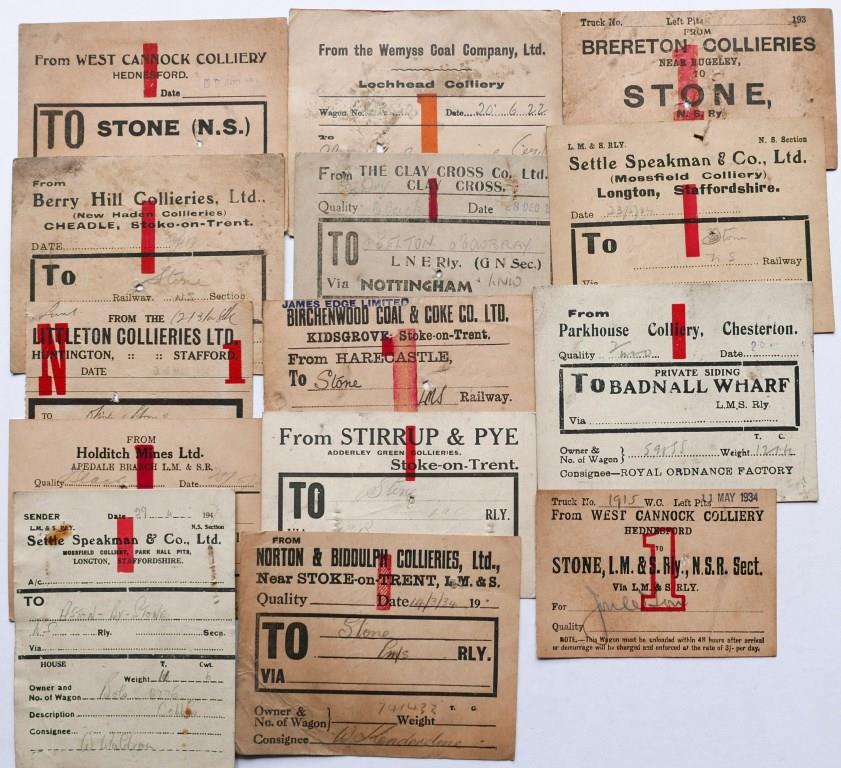 From WEST CANNOCK COLLIERY
HEDNESFORD.
Date
TO STONE (N.S.)
From the Wemyss Coal Company, Ltd.
Lochhead Colliery
Wagon No. Date 20.6.22
To
Truck No. Left Pits 193
FROM
BRERETON COLLIERIES
NEAR RUGELEY,
TO
STONE,
N.S. Ry
From
Berry Hill Collieries, Ltd.,
(New Haden Collieries)
CHEADLE, Stoke-on-Trent.
DATE
To Stone
Railway. N.S. Section
From THE CLAY CROSS Co., Ltd.
CLAY CROSS.
Quality Date 28 DEC
TO MELTON MOWBRAY
L N E Rly. (G N Sec.)
Via NOTTINGHAM
L. M. & S. RLY. N. S. Section
Settle Speakman & Co., Ltd.
(Mossfield Colliery)
Longton, Staffordshire.
Date
To Stone
NS Railway
Via
FROM THE
LITTLETON COLLIERIES LTD.
HUNTINGTON, :: :: STAFFORD.
DATE
N 1
TO Stone
JAMES EDGE LIMITED
BIRCHENWOOD COAL & COKE CO. LTD.
KIDSGROVE, Stoke-on-Trent.
From HARECASTLE,
To Stone
LMS Railway.
1
From
Parkhouse Colliery, Chesterton.
Quality Date
PRIVATE SIDING
To BADNALL WHARF
L.M.S. Rly.
Via
T. C.
Owner & No. of Wagon Weight
Consignee—ROYAL ORDNANCE FACTORY
FROM
Holditch Mines Ltd.
APEDALE BRANCH L.M. & S.R.
Quality Date
From STIRRUP & PYE
ADDERLEY GREEN COLLIERIES.
Stoke-on-Trent.
TO Stone
RLY.
VIA
SENDER Date 29 194
L.M. & S. RLY. N.S. Section
Settle Speakman & Co., Ltd.
MOSSFIELD COLLIERY, PARK HALL PITS,
LONGTON, STAFFORDSHIRE.
A/c
TO
Stone
N.S. Rly. Secn.
Via
HOUSE T. Cwt.
Weight
Owner and
No. of Wagon
Description
Consignee
FROM
NORTON & BIDDULPH COLLIERIES, Ltd.,
Near STOKE-on-TRENT, L.M. & S.
Quality Date 14/3/34 19
TO Stone
LMS RLY.
VIA
Owner & No. of Wagon 741432 Weight T. C.
Consignee
Truck No. 1915 W.C. Left Pits 11 MAY 1934
From WEST CANNOCK COLLIERY
HEDNESFORD
TO
STONE, L.M. & S. Rly., N.S.R. Sect.
Via L.M. & S. RLY.
1
For
Quality
NOTE.—This Wagon must be unloaded within 48 hours after arrival
or demurrage will be charged and enforced at the rate of 3/- per day.